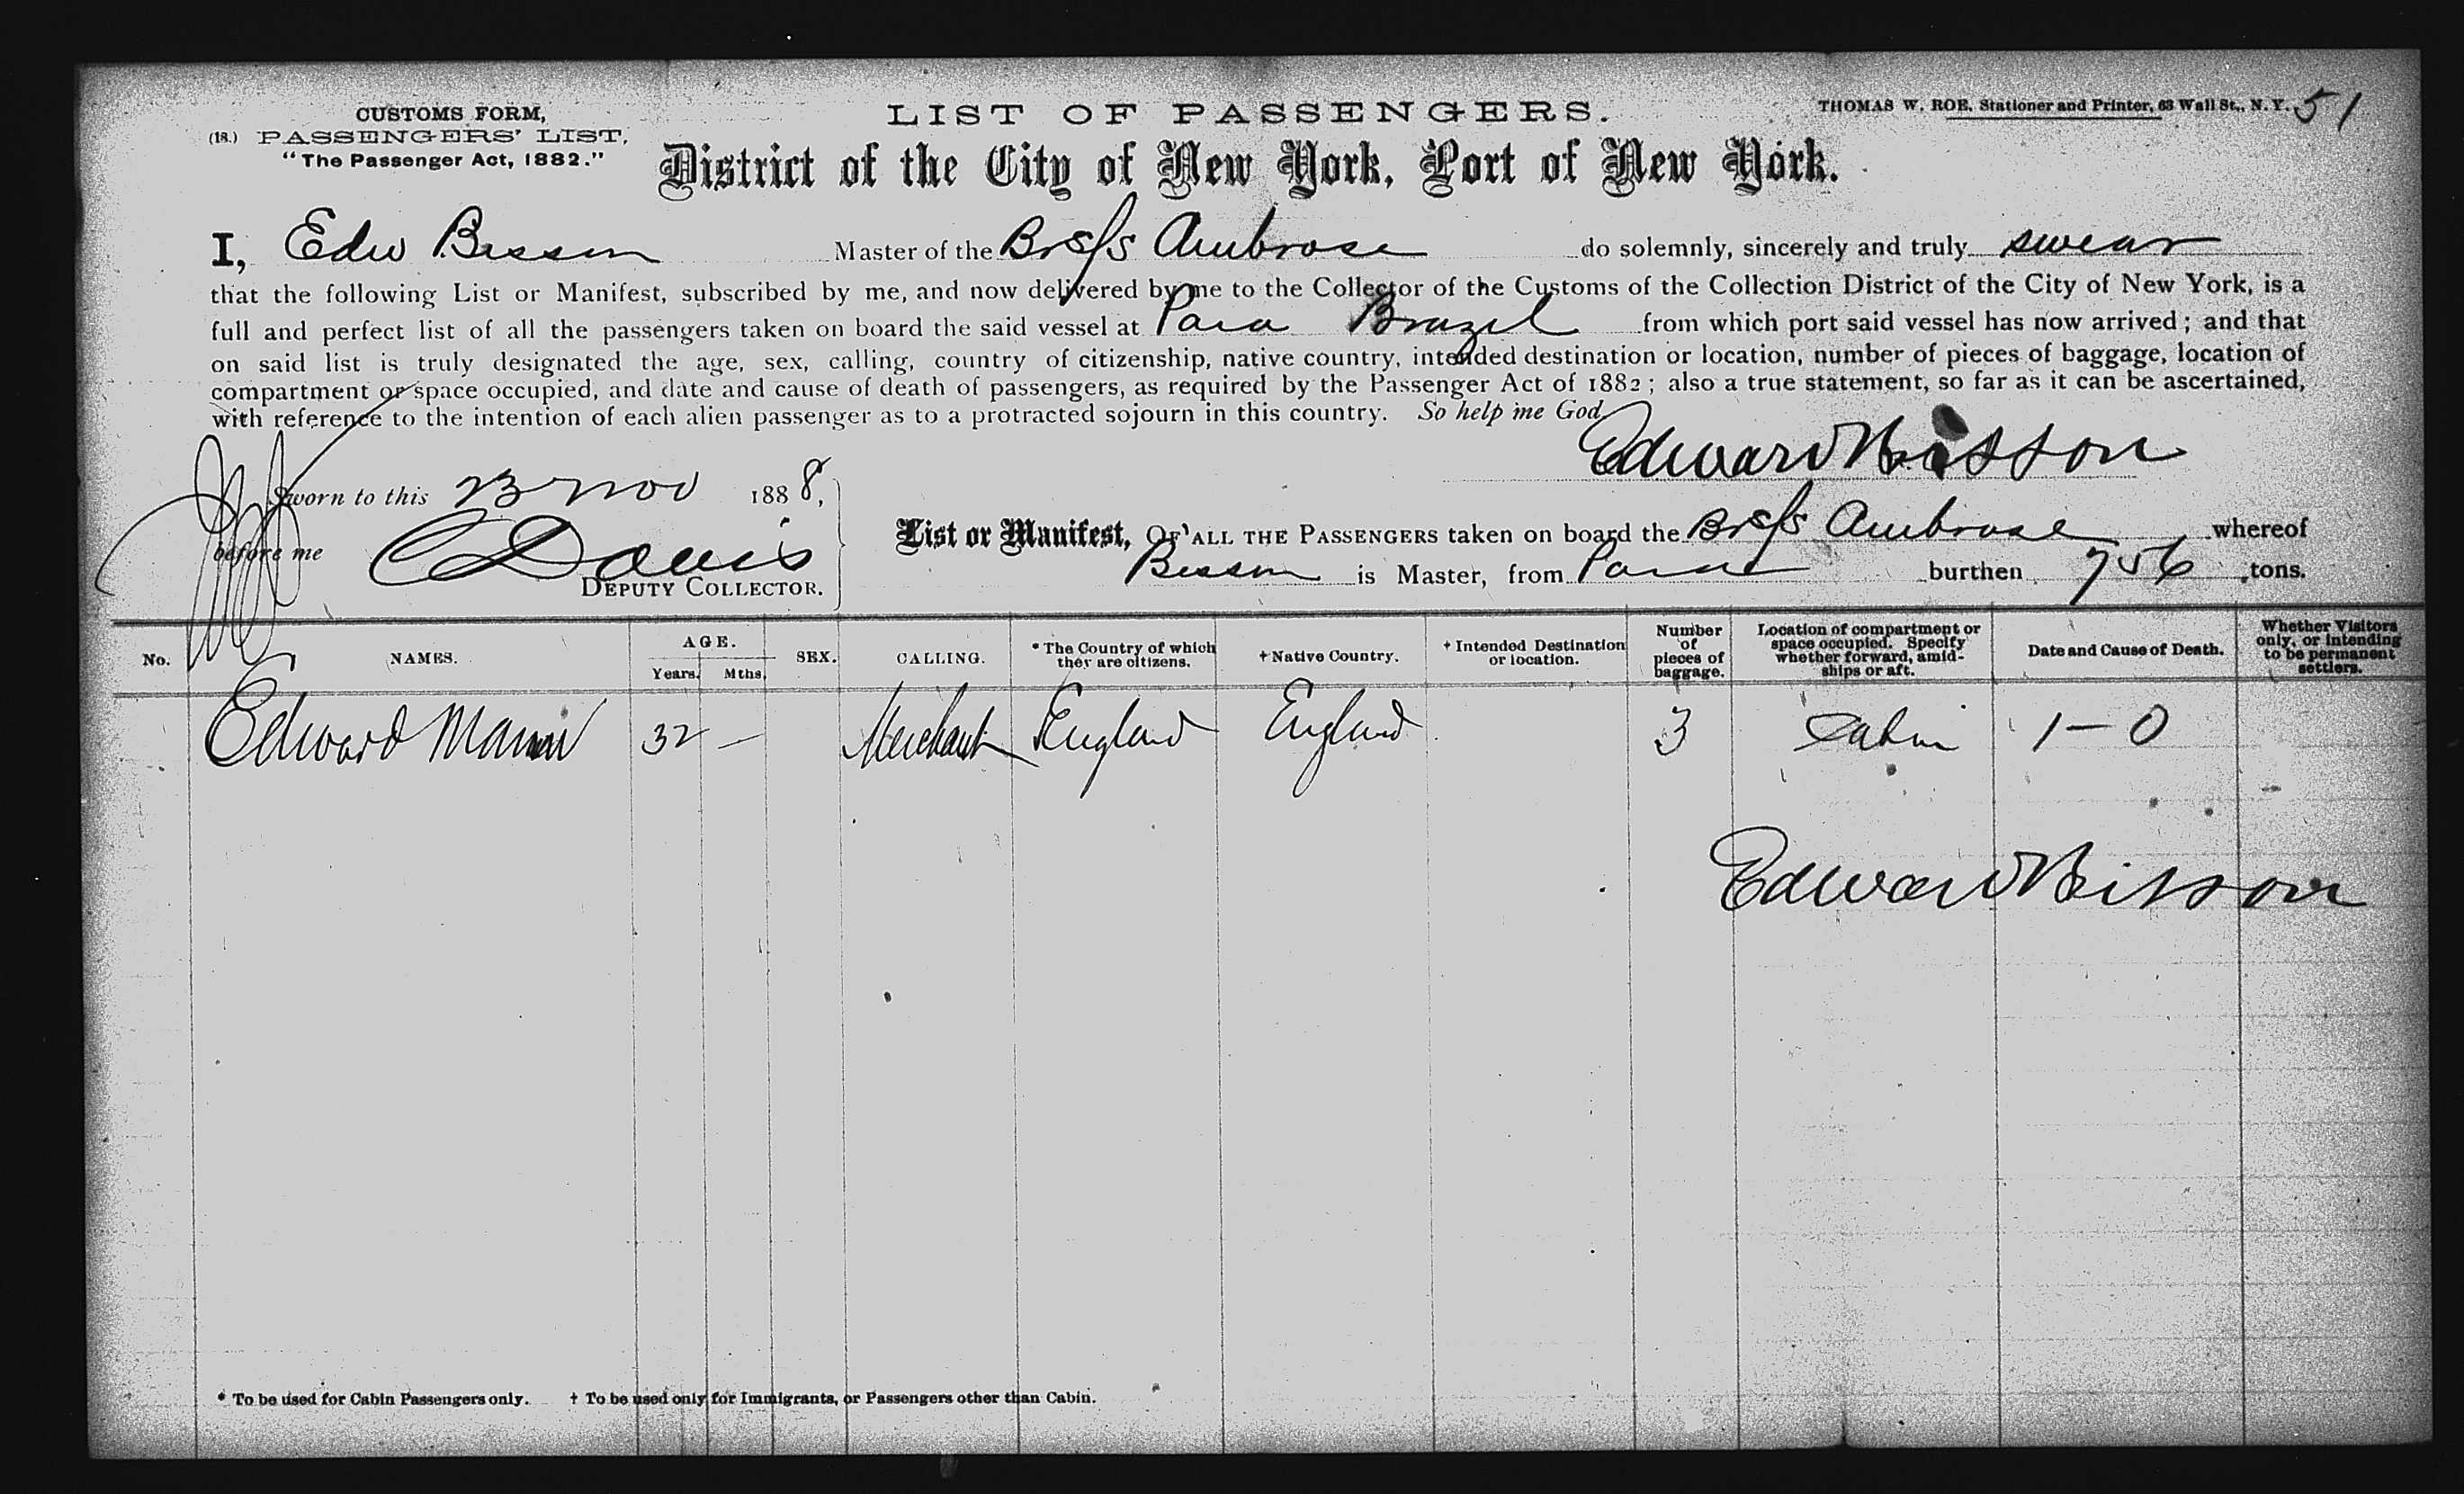 CUSTOMS FORM,
(18.) PASSENGERS' LIST,
"The Passenger Act, 1882."
LIST OF PASSENGERS.
THOMAS W. ROE, Stationer and Printer, 63 Wall St., N. Y.
51
District of the City of New York, Port of New York.
I, Edw Bisson Master of the Br S/S Ambrose do solemnly, sincerely and truly swear
that the following List or Manifest, subscribed by me, and now delivered by me to the Collector of the Customs of the Collection District of the City of New York, is a
full and perfect list of all the passengers taken on board the said vessel at Para Brazil from which port said vessel has now arrived; and that
on said list is truly designated the age, sex, calling, country of citizenship, native country, intended destination or location, number of pieces of baggage, location of
compartment or space occupied, and date and cause of death of passengers, as required by the Passenger Act of 1882; also a true statement, so far as it can be ascertained,
with reference to the intention of each alien passenger as to a protracted sojourn in this country. So help me God
Edward Bisson
Sworn to this 23 Nov 1888,
before me C Davis
DEPUTY COLLECTOR.
List or Manifest, OF ALL THE PASSENGERS taken on board the Br S/S Ambrose whereof
Bisson is Master, from Para burthen 756 tons.
No. NAMES. AGE. Years. Mths. SEX. CALLING. * The Country of which they are citizens. † Native Country. † Intended Destination or location. Number of pieces of baggage. Location of compartment or space occupied. Specify whether forward, amidships or aft. Date and Cause of Death. Whether Visitors only, or intending to be permanent settlers.
Edward 32 — Merchant England England 3 Cabin 1 – 0
Edward Bisson
* To be used for Cabin Passengers only. † To be used only for Immigrants, or Passengers other than Cabin.